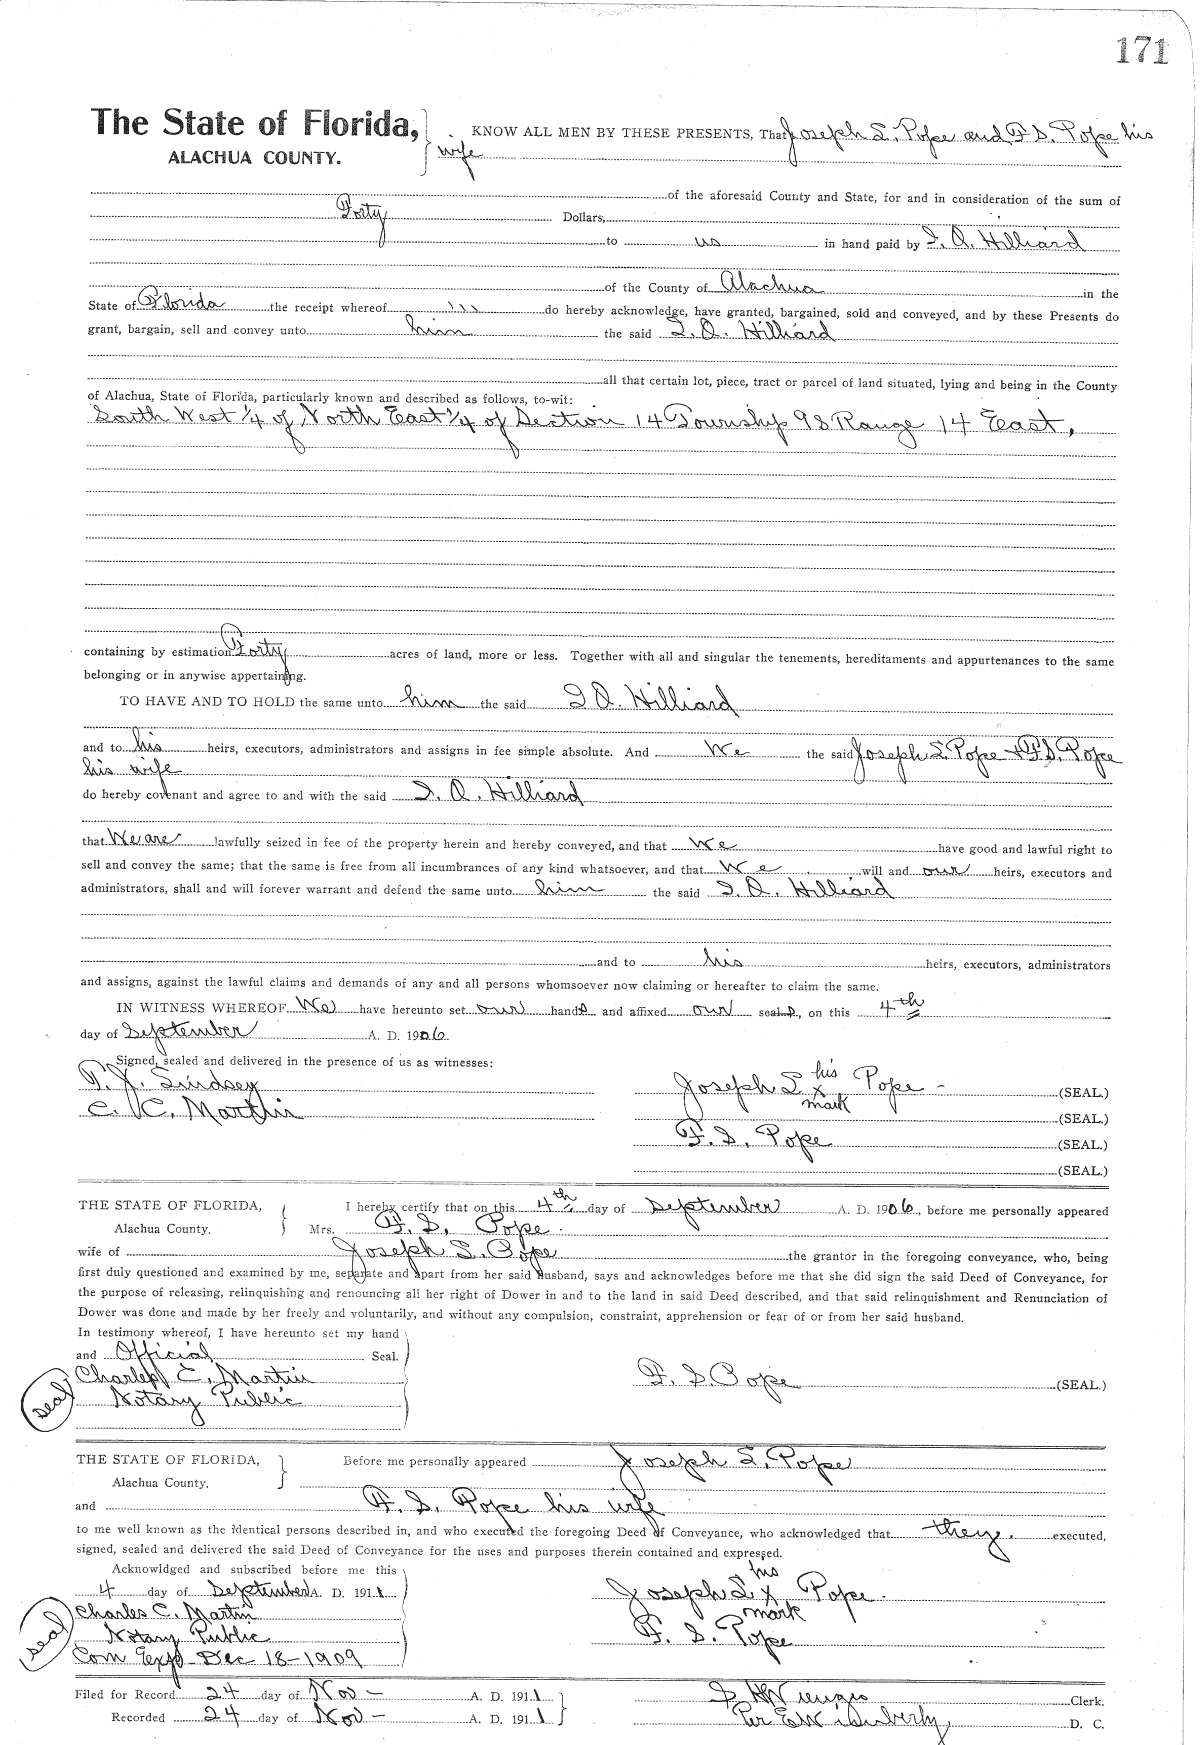 171
The State of Florida,
ALACHUA COUNTY.
KNOW ALL MEN BY THESE PRESENTS, That Joseph S. Pope and F. S. Pope his
wife
of the aforesaid County and State, for and in consideration of the sum of
Forty Dollars,
to us in hand paid by I. O. Hilliard
of the County of Alachua in the
State of Florida the receipt whereof do hereby acknowledge, have granted, bargained, sold and conveyed, and by these Presents do
grant, bargain, sell and convey unto him the said I. O. Hilliard
all that certain lot, piece, tract or parcel of land situated, lying and being in the County
of Alachua, State of Florida, particularly known and described as follows, to-wit:
South West 1/4 of North East 1/4 of Section 14 Township 9S Range 14 East,
containing by estimation Forty acres of land, more or less. Together with all and singular the tenements, hereditaments and appurtenances to the same
belonging or in anywise appertaining.
TO HAVE AND TO HOLD the same unto him the said I O. Hilliard
and to his heirs, executors, administrators and assigns in fee simple absolute. And We the said Joseph S. Pope & F. S. Pope
his wife
do hereby covenant and agree to and with the said I. O. Hilliard
that We are lawfully seized in fee of the property herein and hereby conveyed, and that we have good and lawful right to
sell and convey the same; that the same is free from all incumbrances of any kind whatsoever, and that We will and our heirs, executors and
administrators, shall and will forever warrant and defend the same unto him the said I. O. Hilliard
and to his heirs, executors, administrators
and assigns, against the lawful claims and demands of any and all persons whomsoever now claiming or hereafter to claim the same.
IN WITNESS WHEREOF We have hereunto set our hands and affixed our seals, on this 4th
day of September A. D. 1906.
Signed, sealed and delivered in the presence of us as witnesses:
Lindsey
C. C. Martin
Joseph S. his x mark Pope (SEAL.)
(SEAL.)
F. S. Pope (SEAL.)
(SEAL.)
THE STATE OF FLORIDA,
Alachua County.
I hereby certify that on this 4th day of September A. D. 1906, before me personally appeared
Mrs. F. S. Pope.
wife of Joseph S. Pope the grantor in the foregoing conveyance, who, being
first duly questioned and examined by me, separate and apart from her said husband, says and acknowledges before me that she did sign the said Deed of Conveyance, for
the purpose of releasing, relinquishing and renouncing all her right of Dower in and to the land in said Deed described, and that said relinquishment and Renunciation of
Dower was done and made by her freely and voluntarily, and without any compulsion, constraint, apprehension or fear of or from her said husband.
In testimony whereof, I have hereunto set my hand
and Official Seal.
Charles C. Martin
Notary Public
seal
F. S. Pope (SEAL.)
THE STATE OF FLORIDA,
Alachua County.
Before me personally appeared Joseph S. Pope
and F. S. Pope his wife
to me well known as the identical persons described in, and who executed the foregoing Deed of Conveyance, who acknowledged that they. executed,
signed, sealed and delivered the said Deed of Conveyance for the uses and purposes therein contained and expressed.
Acknowldged and subscribed before me this
4 day of September A. D. 1911
Charles C. Martin
Notary Public
Com Exp Dec 18-1909
seal
Joseph S. his x mark Pope.
F. S. Pope
Filed for Record 24 day of Nov - A. D. 1911
Recorded 24 day of Nov - A. D. 1911
S. H. Clerk.
Per E W D. C.